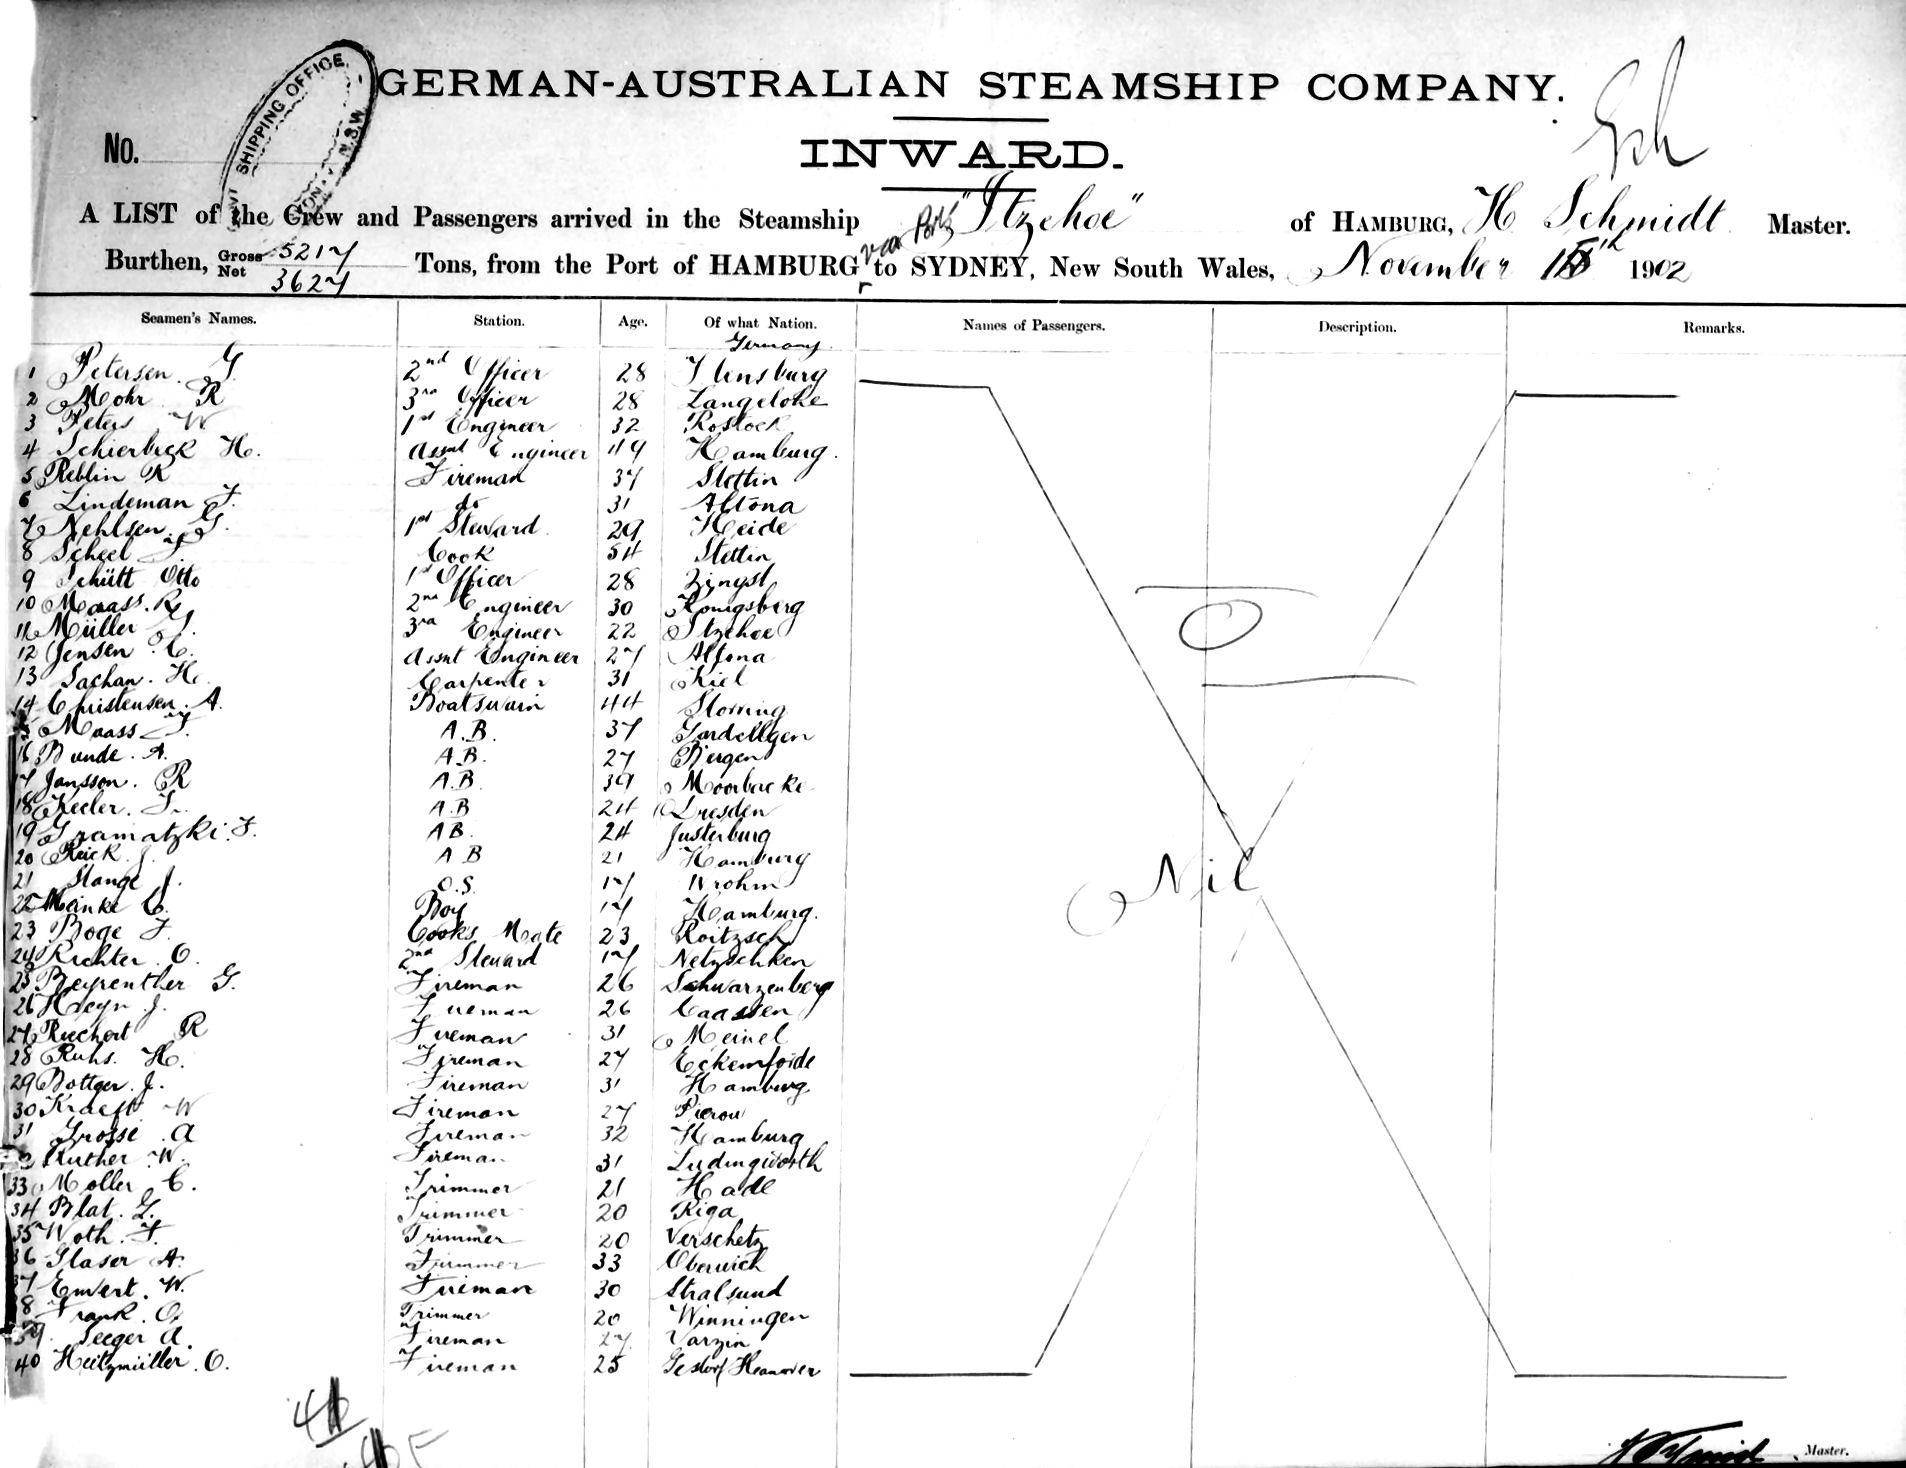 GERMAN-AUSTRALIAN STEAMSHIP COMPANY.
SHIPPING OFFICE, N.S.W.
No.
INWARD.
A LIST of the Crew and Passengers arrived in the Steamship "Itzehoe" of HAMBURG, H Schmidt Master.
Burthen, Gross 5217 Net 3627 Tons, from the Port of HAMBURG via Ports to SYDNEY, New South Wales, November 1902
Seamen's Names. Station. Age. Of what Nation. Names of Passengers. Description. Remarks.
Germany
1 Petersen G. 2nd Officer 28 Flensburg
2 Mohr R 3rd Officer 28 Langelohe
3 Peters W 1st Engineer 32 Rostock
4 Schierbeck H. Assnt Engineer 49 Hamburg.
5 Reblin R Fireman 37 Stettin
6 Lindeman F. do 31 Altona
7 Nehlsen. G. 1st Steward 29 Heide
8 Scheel F Cook 54 Stettin
9 Schütt Otto 1st Officer 28 Zingst
10 Maass. R 2nd Engineer 30 Königsberg
11 Müller G. 3rd Engineer 22 Itzehoe
12 Jensen C. Assnt Engineer 27 Altona
13 Sachan. H. Carpenter 31 Kiel
14 Christensen. A. Boatswain 44
15 Maass F. A.B. 37 Gardellgen
16 Bunde. A. A.B. 27 Bergen
17 Jansson. R A.B. 39 Moorbacke
18 A.B 24 Dresden
19 Gramatzki. F. AB. 24 Justerburg
20 Reick. J. A B 21 Hamburg
21 Stange J. O.S. 17 Wrohm
22 Meinke C. Boy 17 Hamburg.
23 Boge F. Cooks Mate 23 Roitzsch
24 Richter O. 2nd Steward 17 Netzschken
25 Beyrenther G. Fireman 26 Schwarzenberg
26 Heyn J. Fireman 26 Caassen
27 Riechert R Fireman 31 Meinel
28 Ruhs. H. Fireman 27 Eckernförde
29 Bottger. J. Fireman 31 Hamburg
30 Kraeft W Fireman 27
31 Grosse. A Fireman 32 Hamburg
Ruther W. Fireman 31 Ludingworth
33 Moller C. Trimmer 21 Hade
34 Blat. L. Trimmer 20 Riga
35 Woth. F. Trimmer 20 Verschetz
36 Glaser A. Trimmer 33 Oberwich
37 Ewert. W. Fireman 30 Stralsund
38 Frank. O. Trimmer 20 Winningen
39 Seeger A Fireman 27 Varzin
40 Heitzmüller. O. Fireman 25 Gestorf Hannover
Nil
Master.